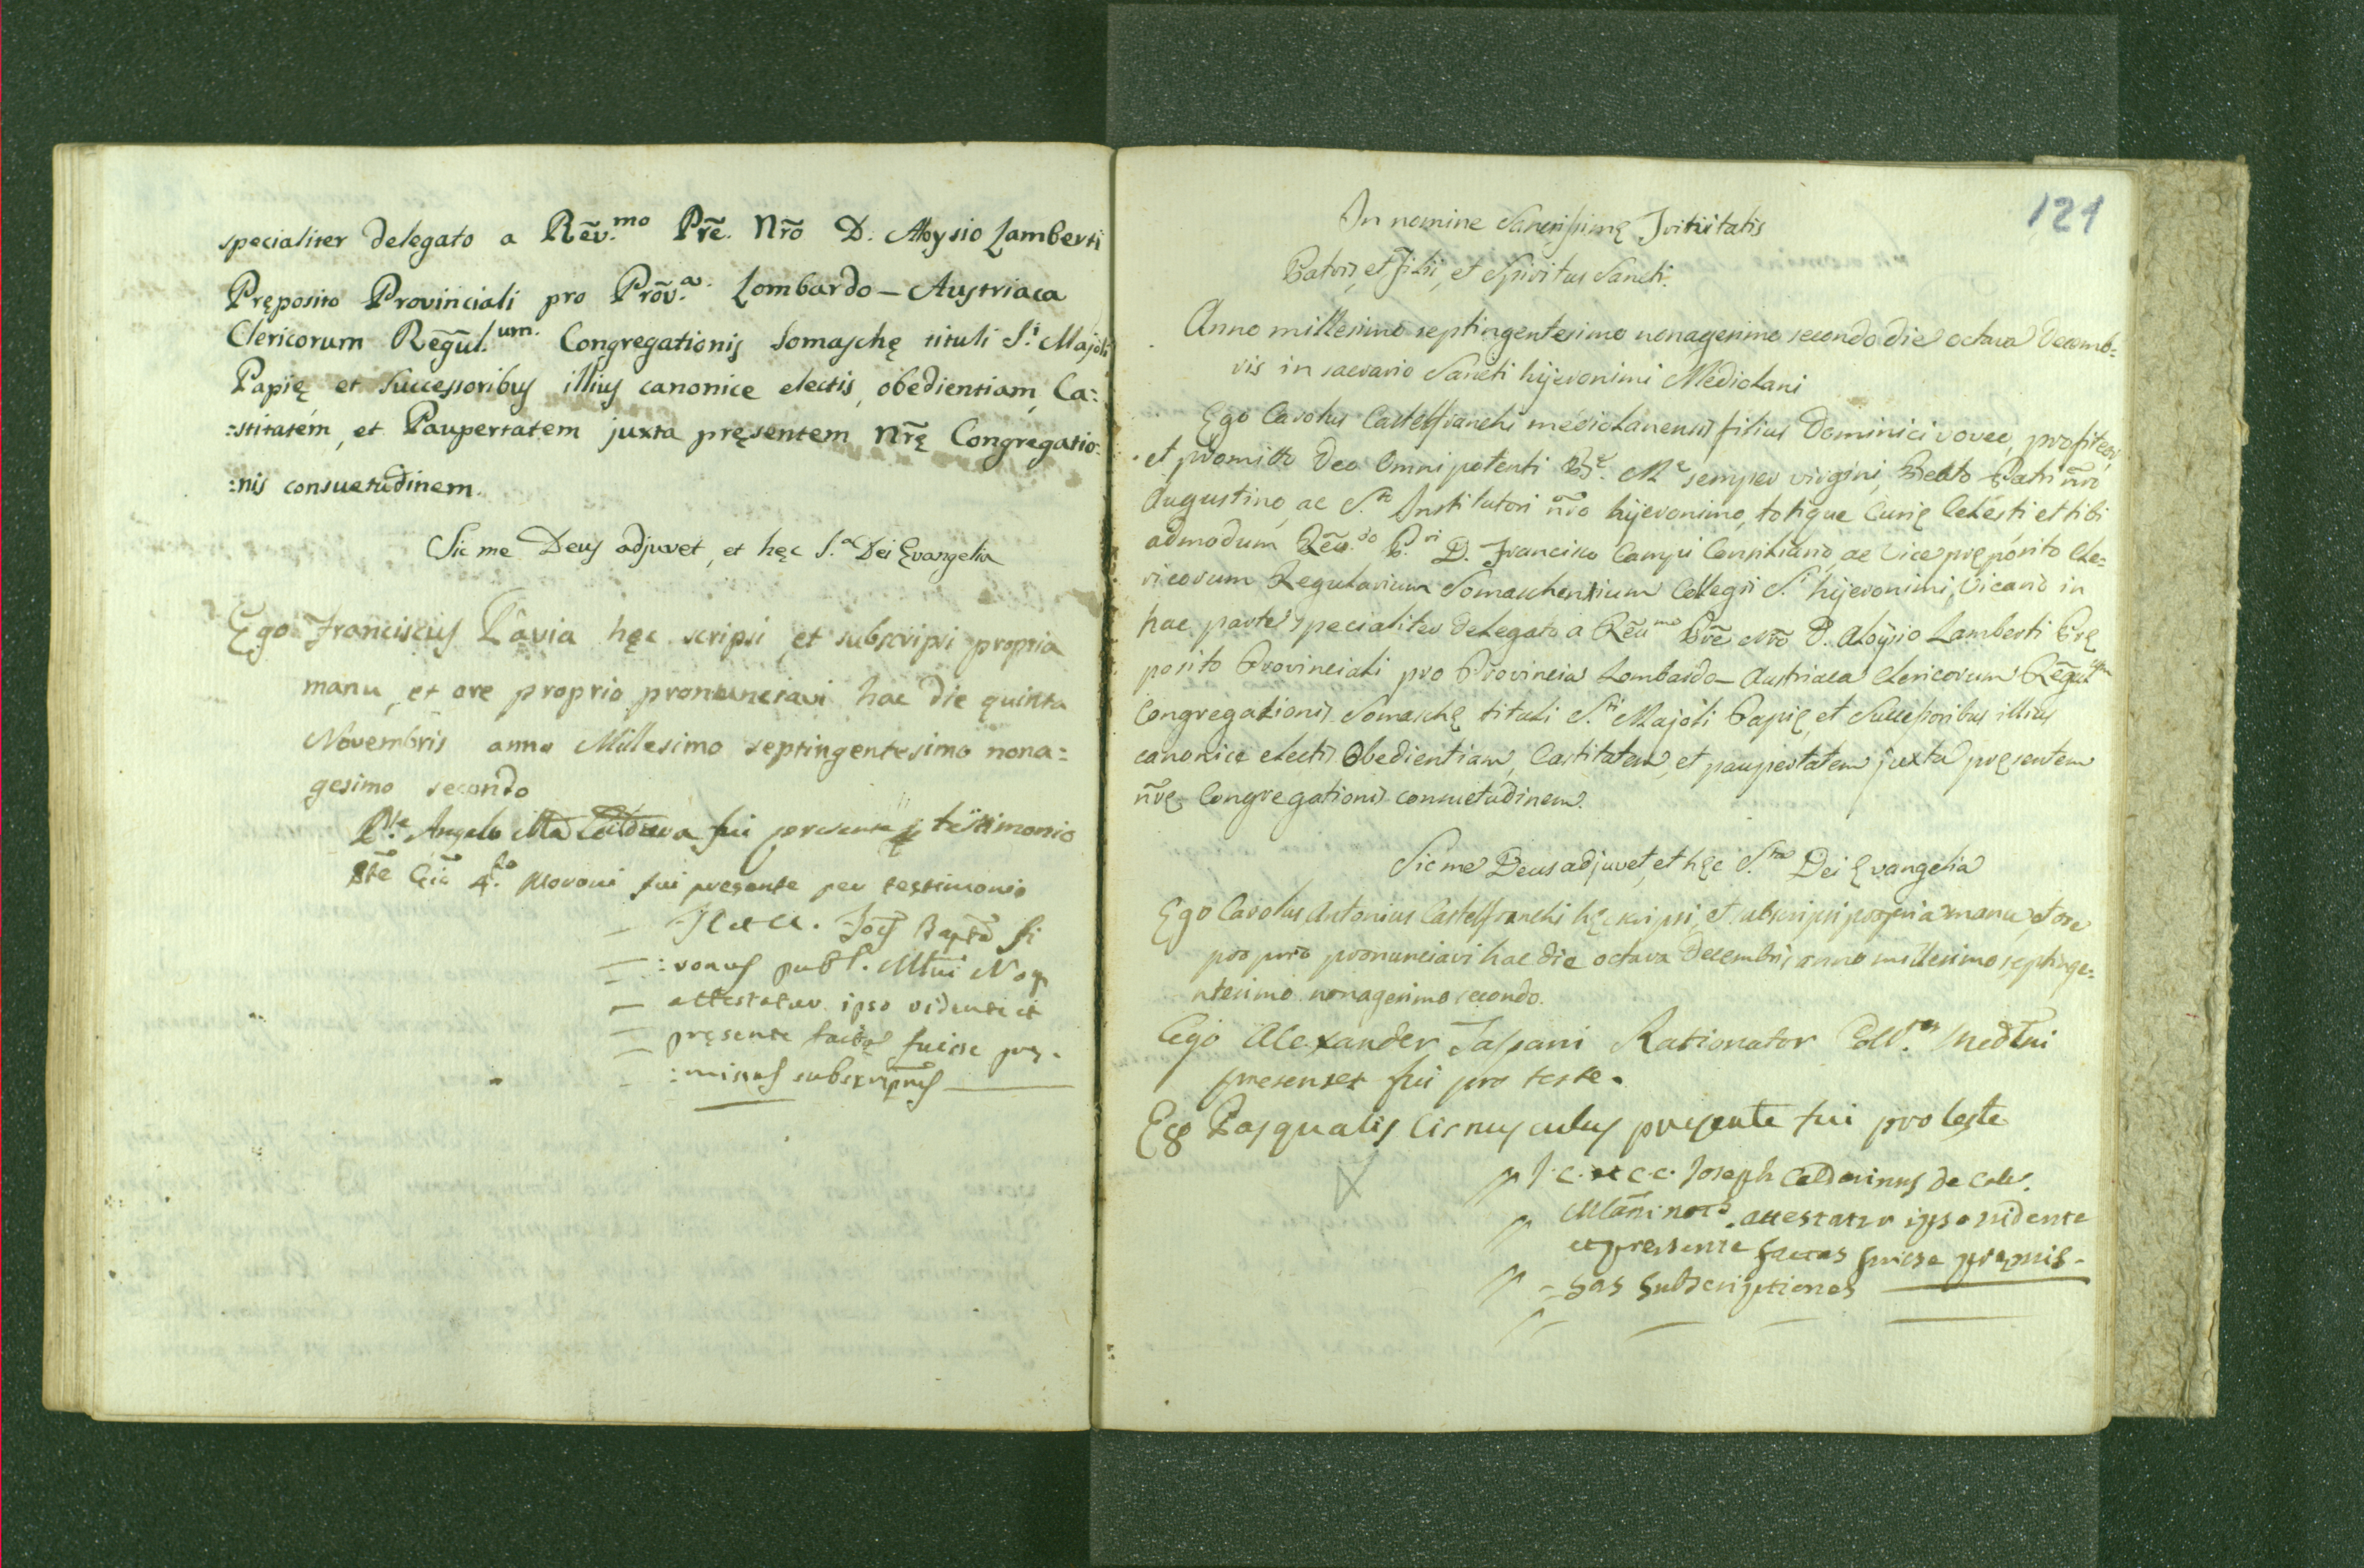 specialiter delegato a Rẽv.mo Pr̃e. Nr̃o D. Aloysio Lamberti
Pręposito Provinciali pro Prõv.a Lombardo-Austriaca
Clericorum Regũl.um. Congregationis Somaschę tituli S.i Majoli
Papię et Successoribus illius canonice electis, obedientiam, Ca:
:stitatem, et Paupertatem juxta pręsentem Nr̃ę Congregatio:
:nis consuetudinem.
Sic me Deus adjuvet, et hęc S.a Dei Evangelia
Ego Franciscus Pavia hęc scripsi, et subscripsi propria
manu, et ore proprio pronunciavi hac die quinta
Novembris anno Millesimo septingentesimo nona=
gesimo secondo
P.te Angelo Ma fui presente testimonio
Pte Gio Moroni fui presente per testimonio
J C et C. Joẽs Bapta Si
:vorus publ. Mlni Noq
attestatur ipso vidente et
pręsente factas fuisse prę.
:missas subscriptnes
121
In nomine Sanctissimę Trinitatis
Patris, et Filii, et Spiritus Sancti.
Anno millesimo septingentesimo nonagesimo secondo die octava Decemb=
ris in sacrario Sancti hijeronimi Mediolani
Ego Carolus Castelfranchi mediolanensis filius Dominici voveo, profiteor,
et promitto Deo Omnipotenti B.e M.e semper virgini, Beato Patri nr̃o
Augustino, ac S.to Institutori nr̃o hijeronimo, totique Curię Celesti et tibi
admodum Rẽu.do P.ri D. Francisco Campi Consiliario, ac Vice pręposito Cle=
ricorum Regularium Somaschensium Collegii S.i hijeronimi, Vicario in
hac parte specialiter delegato a Rẽu.mo Pr̃e Nr̃o D. Aloÿsio Lamberti Prę
posito Provinciali pro Provincia Lombardo-Austriaca Clericorum Rẽgul.um
Congregationis Somaschę tituli S.ti Majoli Papię, et Successoribus illius
canonice electis Obedientiam, Castitatem, et paupertatem juxta pręsentem
nr̃ę Congregationis consuetudinem.
Sic me Deus adjuvet, et hęc S.ta Dei Evangelia
Ego Carolus Antonius Castelfranchi hęc scripsi, et subscripsi propria manu, et ore
proprio pronunciavi hac die octava Decembris anno millesimo septinge=
ntesimo nonagesimo secondo.
Ego Alexander Taspani Rationator Coll. Medlni
presenses fui pro teste.
Ego Pasqualis Cirnusculus presente fui pro teste
J. C. et C. C. Joseph Calderinus de Coll.
Mlani not.s attestatur ipso vidente
et pręsente factas fuisse pręmis-
-sas subscriptiones